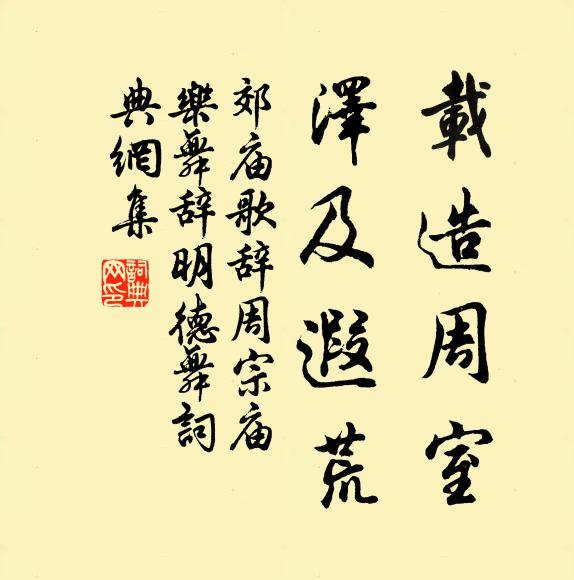 載造周室
澤及遐荒
郊庙歌辞周宗庙
樂舞辞明德舞詞
典網集
詞典網印